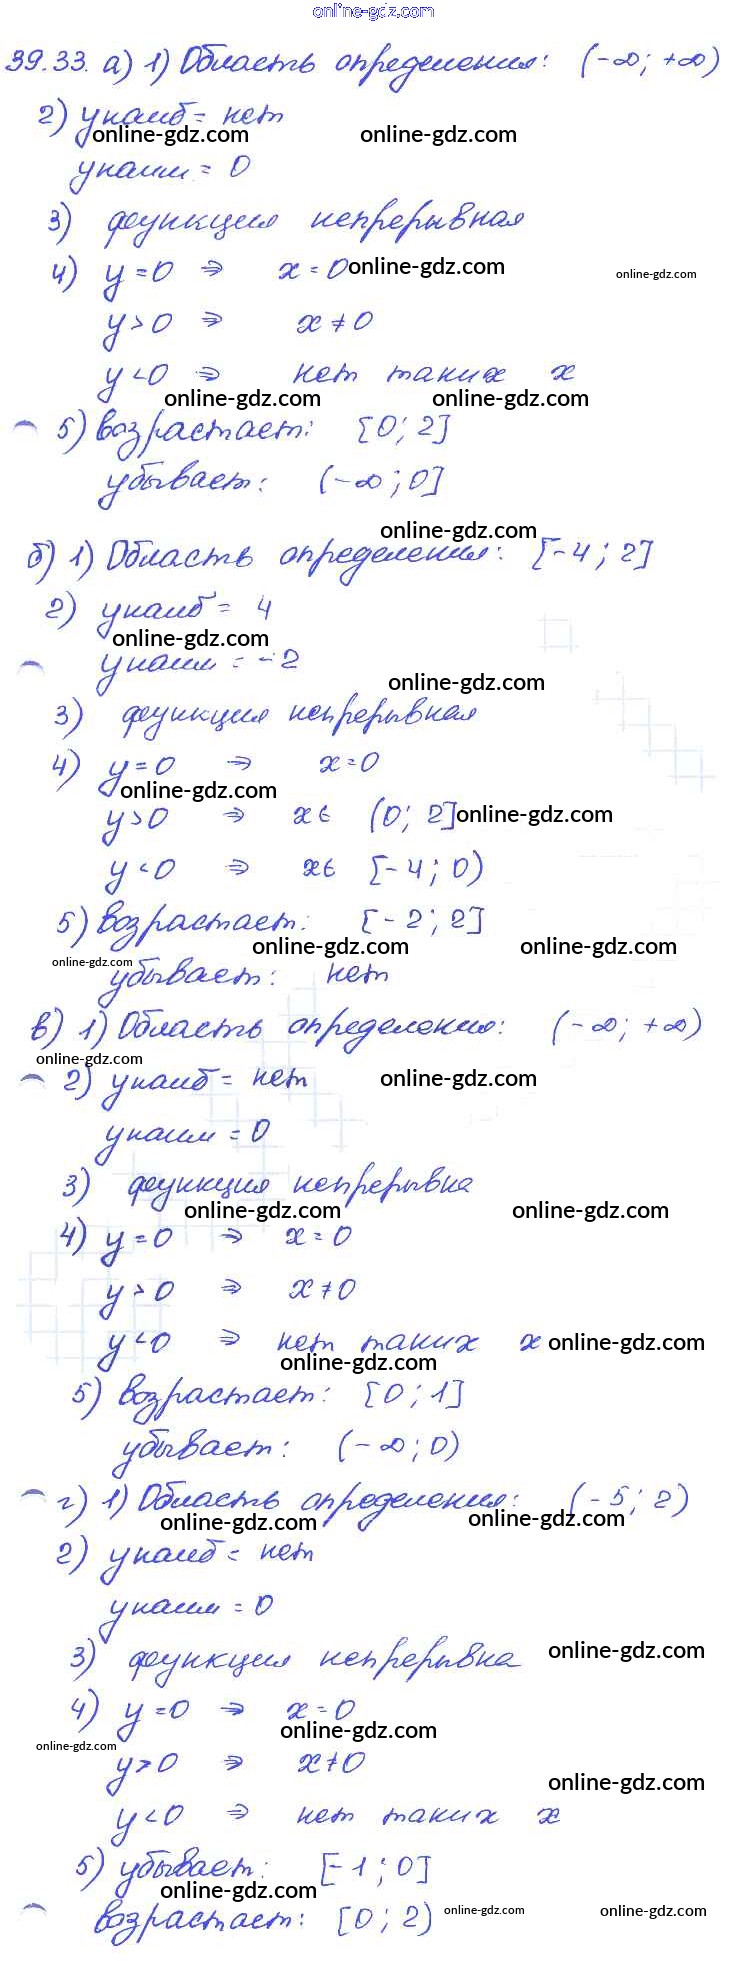 online-gdz.com
39.33. а) 1) Область определения: (-∞; +∞)
2) yнаиб = нет
online-gdz.com online-gdz.com
yнаим = 0
3) функция непрерывная
4) y=0 ⇒ x=0 online-gdz.com online-gdz.com
y>0 ⇒ x≠0
y<0 ⇒ нет таких x
online-gdz.com online-gdz.com
5) возрастает: [0; 2]
убывает: (-∞; 0]
online-gdz.com
б) 1) Область определения: [-4; 2]
2) yнаиб = 4
online-gdz.com
yнаим = -2
online-gdz.com
3) функция непрерывная
4) y=0 ⇒ x=0
online-gdz.com
y>0 ⇒ x∈ (0; 2] online-gdz.com
y<0 ⇒ x∈ [-4; 0)
5) возрастает: [-2; 2]
online-gdz.com online-gdz.com
online-gdz.com
убывает: нет
в) 1) Область определения: (-∞; +∞)
online-gdz.com
2) yнаиб = нет online-gdz.com
yнаим = 0
3) функция непрерывна
online-gdz.com online-gdz.com
4) y=0 ⇒ x=0
y>0 ⇒ x≠0
y<0 ⇒ нет таких x online-gdz.com
online-gdz.com
5) возрастает: [0; 1]
убывает: (-∞; 0)
г) 1) Область определения: (-5; 2)
online-gdz.com online-gdz.com
2) yнаиб = нет
yнаим = 0
3) функция непрерывна online-gdz.com
4) y=0 ⇒ x=0
online-gdz.com
online-gdz.com
y>0 ⇒ x≠0
online-gdz.com
y<0 ⇒ нет таких x
5) убывает: [-1; 0]
online-gdz.com
возрастает: [0; 2) online-gdz.com online-gdz.com